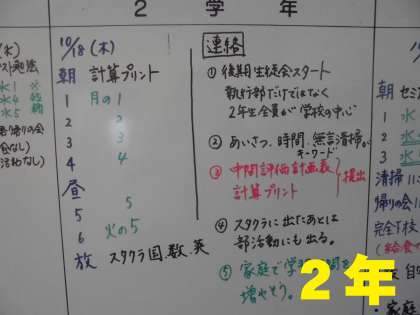 2 学 年
10/18 (木)
朝 計算プリント
1 月の1
2 2
3 3
4 4
昼
5 5
6 火の5
放 スタクラ 国、数、英
連絡
① 後期生徒会スタート
執行部だけではなく
2年生全員が学校の中心
② あいさつ、時間、無言清掃が
キーワード
③ 中間評価計画表
計算プリント
提出
④ スタクラに出たあとは
部活動にも出る。
⑤ 家庭で学習
増やそう。
朝 セミ
1 水
2 水
3 水
清掃
帰りの会
完全下校
(給食
2年